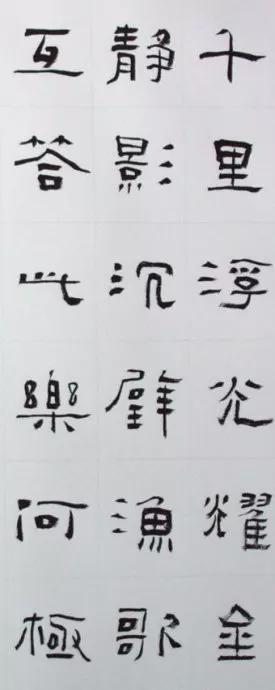 千里浮光耀金
静影沉璧漁歌
互答此樂何極